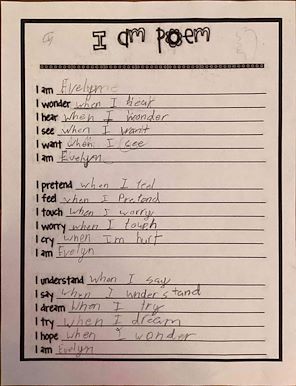 I am poem
I am Evelyn
I wonder when I hear
I hear when I wonder
I see when I want
I want when I see
I am Evelyn
I pretend when I feel
I feel when I Pretend
I touch when I worry
I worry when I touph
I cry when Im hurt
I am Evelyn
I understand when I say
I say when I understand
I dream when I try
I try when I dream
I hope when I wonder
I am Evelyn